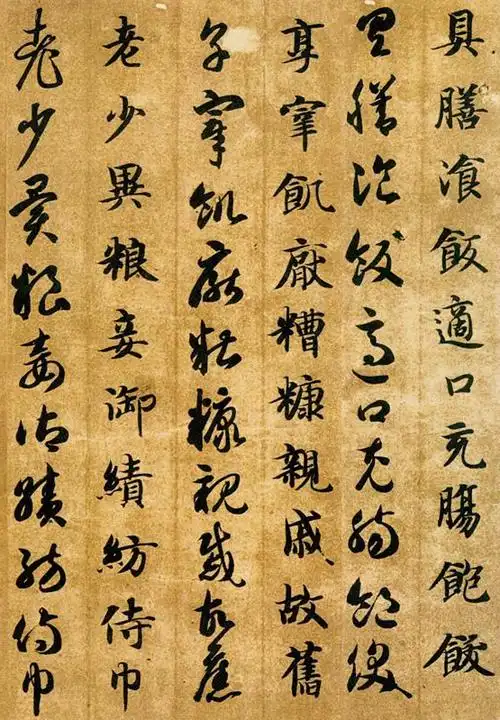 具膳湌飯適口充腸飽飫
具膳湌飯適口充腸飽飫
享宰飢厭糟糠親戚故舊
享宰飢厭糟糠親戚故舊
老少異粮妾御績紡侍巾
老少異粮妾御績紡侍巾